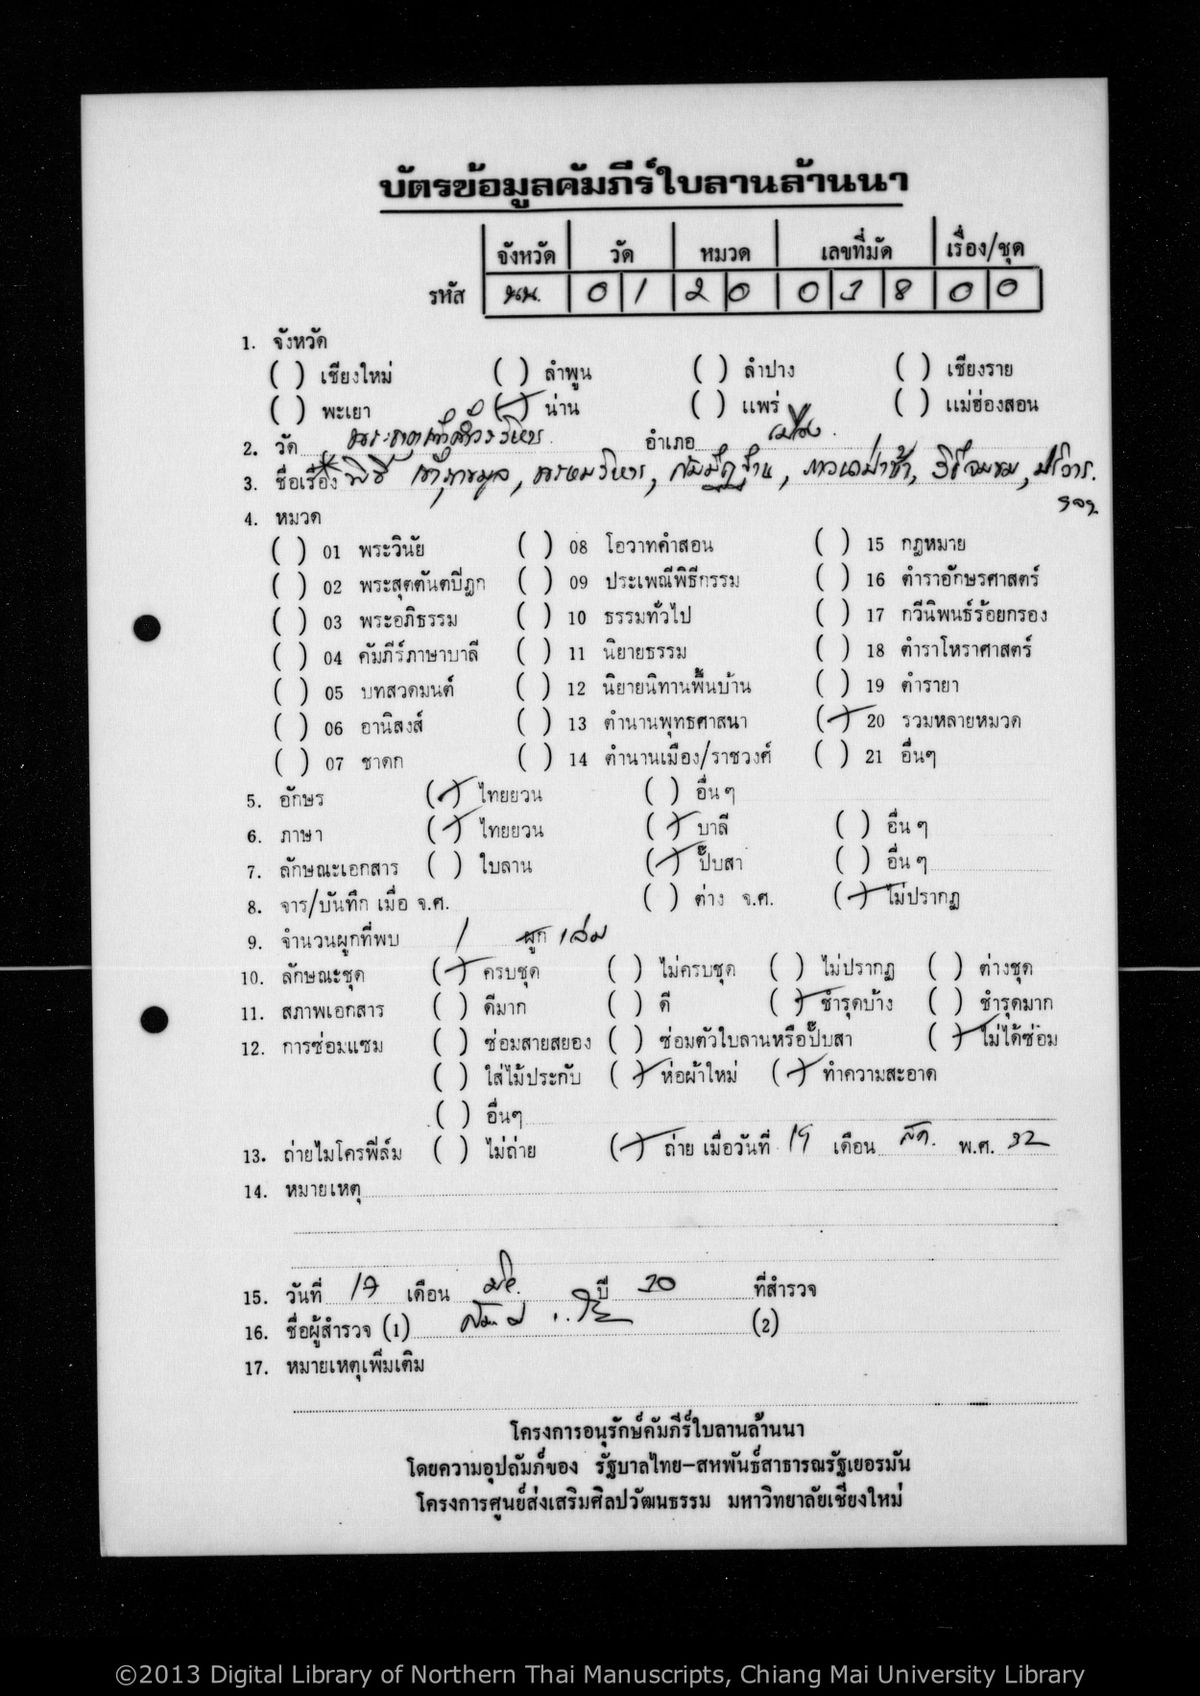 บัตรข้อมูลคัมภีร์ใบลานล้านนา
จังหวัด วัด หมวด เลขที่มัด เรื่อง/ชุด
รหัส นน. 0 1 2 0 0 1 8 0 0
1. จังหวัด
( ) เชียงใหม่ ( ) ลำพูน ( ) ลำปาง ( ) เชียงราย
( ) พะเยา (/) น่าน ( ) แพร่ ( ) แม่ฮ่องสอน
2. วัด อำเภอ เมือง
3. ชื่อเรื่อง พิธี
4. หมวด
( ) 01 พระวินัย ( ) 08 โอวาทคำสอน ( ) 15 กฎหมาย
( ) 02 พระสุตตันตปิฎก ( ) 09 ประเพณีพิธีกรรม ( ) 16 ตำราอักษรศาสตร์
( ) 03 พระอภิธรรม ( ) 10 ธรรมทั่วไป ( ) 17 กวีนิพนธ์ร้อยกรอง
( ) 04 คัมภีร์ภาษาบาลี ( ) 11 นิยายธรรม ( ) 18 ตำราโหราศาสตร์
( ) 05 บทสวดมนต์ ( ) 12 นิยายนิทานพื้นบ้าน ( ) 19 ตำรายา
( ) 06 อานิสงส์ ( ) 13 ตำนานพุทธศาสนา (/) 20 รวมหลายหมวด
( ) 07 ชาดก ( ) 14 ตำนานเมือง/ราชวงศ์ ( ) 21 อื่นๆ
5. อักษร (/) ไทยยวน ( ) อื่นๆ
6. ภาษา (/) ไทยยวน (/) บาลี ( ) อื่นๆ
7. ลักษณะเอกสาร ( ) ใบลาน (/) ปั๊บสา ( ) อื่นๆ
8. จาร/บันทึก เมื่อ จ.ศ. ( ) ต่าง จ.ศ. (/) ไม่ปรากฏ
9. จำนวนผูกที่พบ 1 ผูก เล่ม
10. ลักษณะชุด (/) ครบชุด ( ) ไม่ครบชุด ( ) ไม่ปรากฏ ( ) ต่างชุด
11. สภาพเอกสาร ( ) ดีมาก ( ) ดี (/) ชำรุดบ้าง ( ) ชำรุดมาก
12. การซ่อมแซม ( ) ซ่อมสายสยอง ( ) ซ่อมตัวใบลานหรือปั๊บสา (/) ไม่ได้ซ่อม
( ) ใส่ไม้ประกับ (/) ห่อผ้าใหม่ (/) ทำความสะอาด
( ) อื่นๆ
13. ถ่ายไมโครฟิล์ม ( ) ไม่ถ่าย (/) ถ่าย เมื่อวันที่ 19 เดือน พ.ศ. 32
14. หมายเหตุ
15. วันที่ 17 เดือน ปี 30 ที่สำรวจ
16. ชื่อผู้สำรวจ (1) (2)
17. หมายเหตุเพิ่มเติม
โครงการอนุรักษ์คัมภีร์ใบลานล้านนา
โดยความอุปถัมภ์ของ รัฐบาลไทย-สหพันธ์สาธารณรัฐเยอรมัน
โครงการศูนย์ส่งเสริมศิลปวัฒนธรรม มหาวิทยาลัยเชียงใหม่
©2013 Digital Library of Northern Thai Manuscripts, Chiang Mai University Library